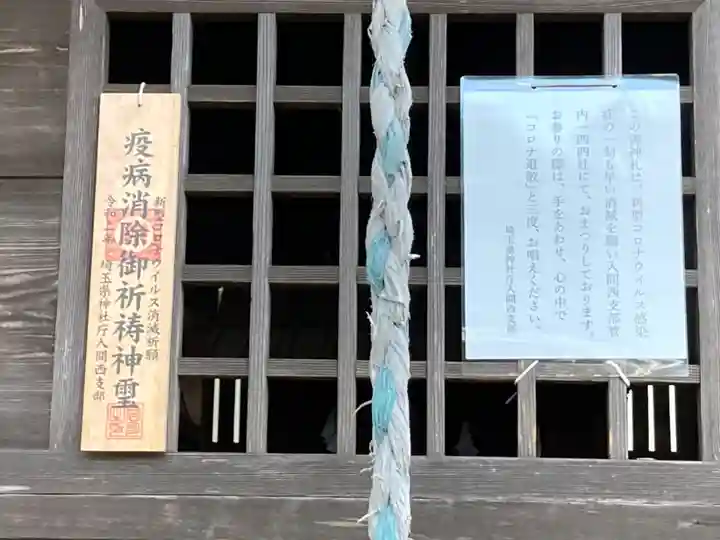 この御神札は、新型コロナウイルス感染
症の一刻も早い消滅を願い入間西支部管
内一四四社にて、おまつりしております。
お参りの際は、手をあわせ、心の中で
「コロナ退散」と三度、お唱えください。
埼玉県神社庁入間西支部
新型コロナウイルス消滅祈願
疫病消除御祈祷神璽
令和二年
埼玉県神社庁入間西支部